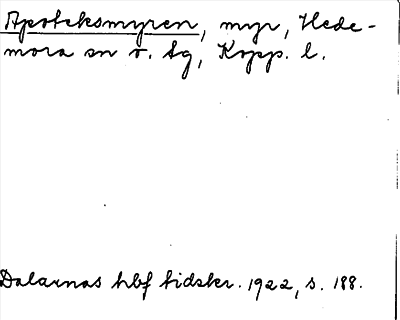 Apoteksmyren, myr, Hede-
mora sn o. tg, Kopp. l.
Dalarnas hbf tidskr. 1922, s. 188.